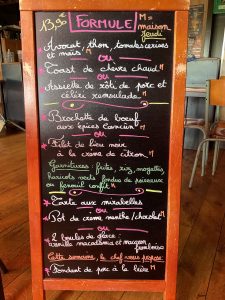 13,90€ FORMULE M = maison
Jeudi
Avocat, thon, tomates cerises
et maïs M
ou
Toast de chèvre chaud M
ou
Assiette de rôti de porc et
céleri remoulade M
Brochette de boeuf
aux épices Cancun M
ou
Filet de lieu noir
à la crème de citron M
Garnitures: frites, riz, rognettes,
haricots verts fondue de poireaux
ou fenouil confit M
Tarte aux mirabelles
ou
Pot de crème menthe/chocolat M
ou
2 boules de glace:
vanille macadamia et maison
framboise
Cette semaine, le chef vous propose:
Fondant de porc à la bière M